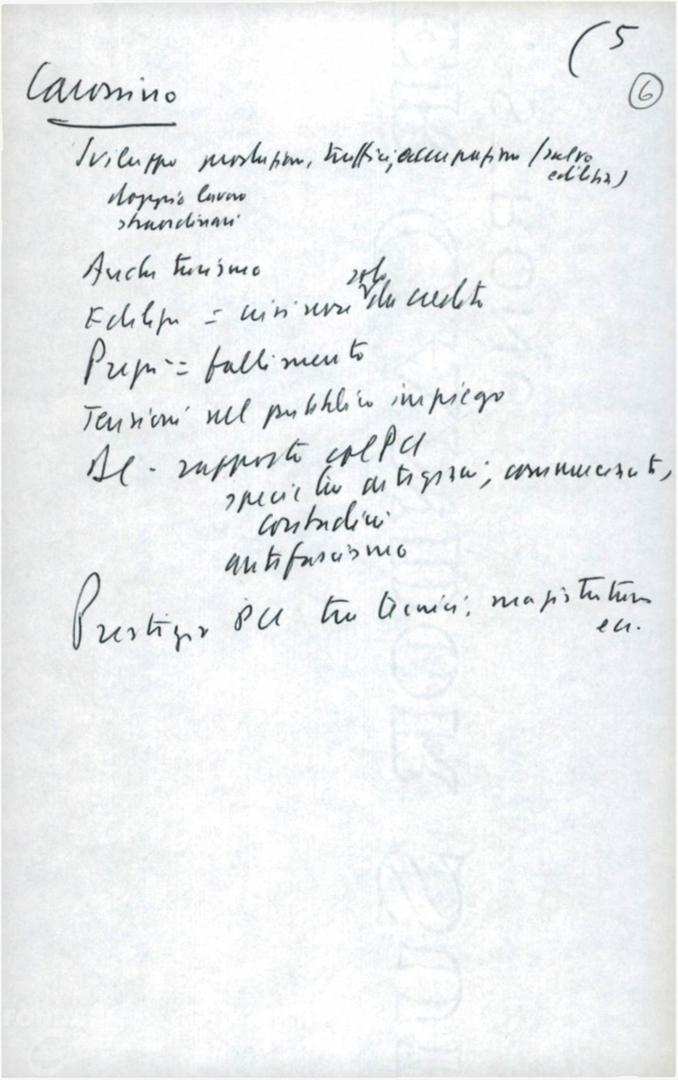 (5
6
Carossino
Sviluppo produzione, traffici, occupazione (salvo
edilizia)
doppio lavoro
straordinari
Anche turismo
Edilizia = crisi viene solo da credito
Prezzi = fallimento
Tensioni nel pubblico impiego
DC - rapporto col PCI
specie tra artigiani, commercianti,
contadini
antifascismo
Prestigio PCI tra tecnici, magistratura
ecc.